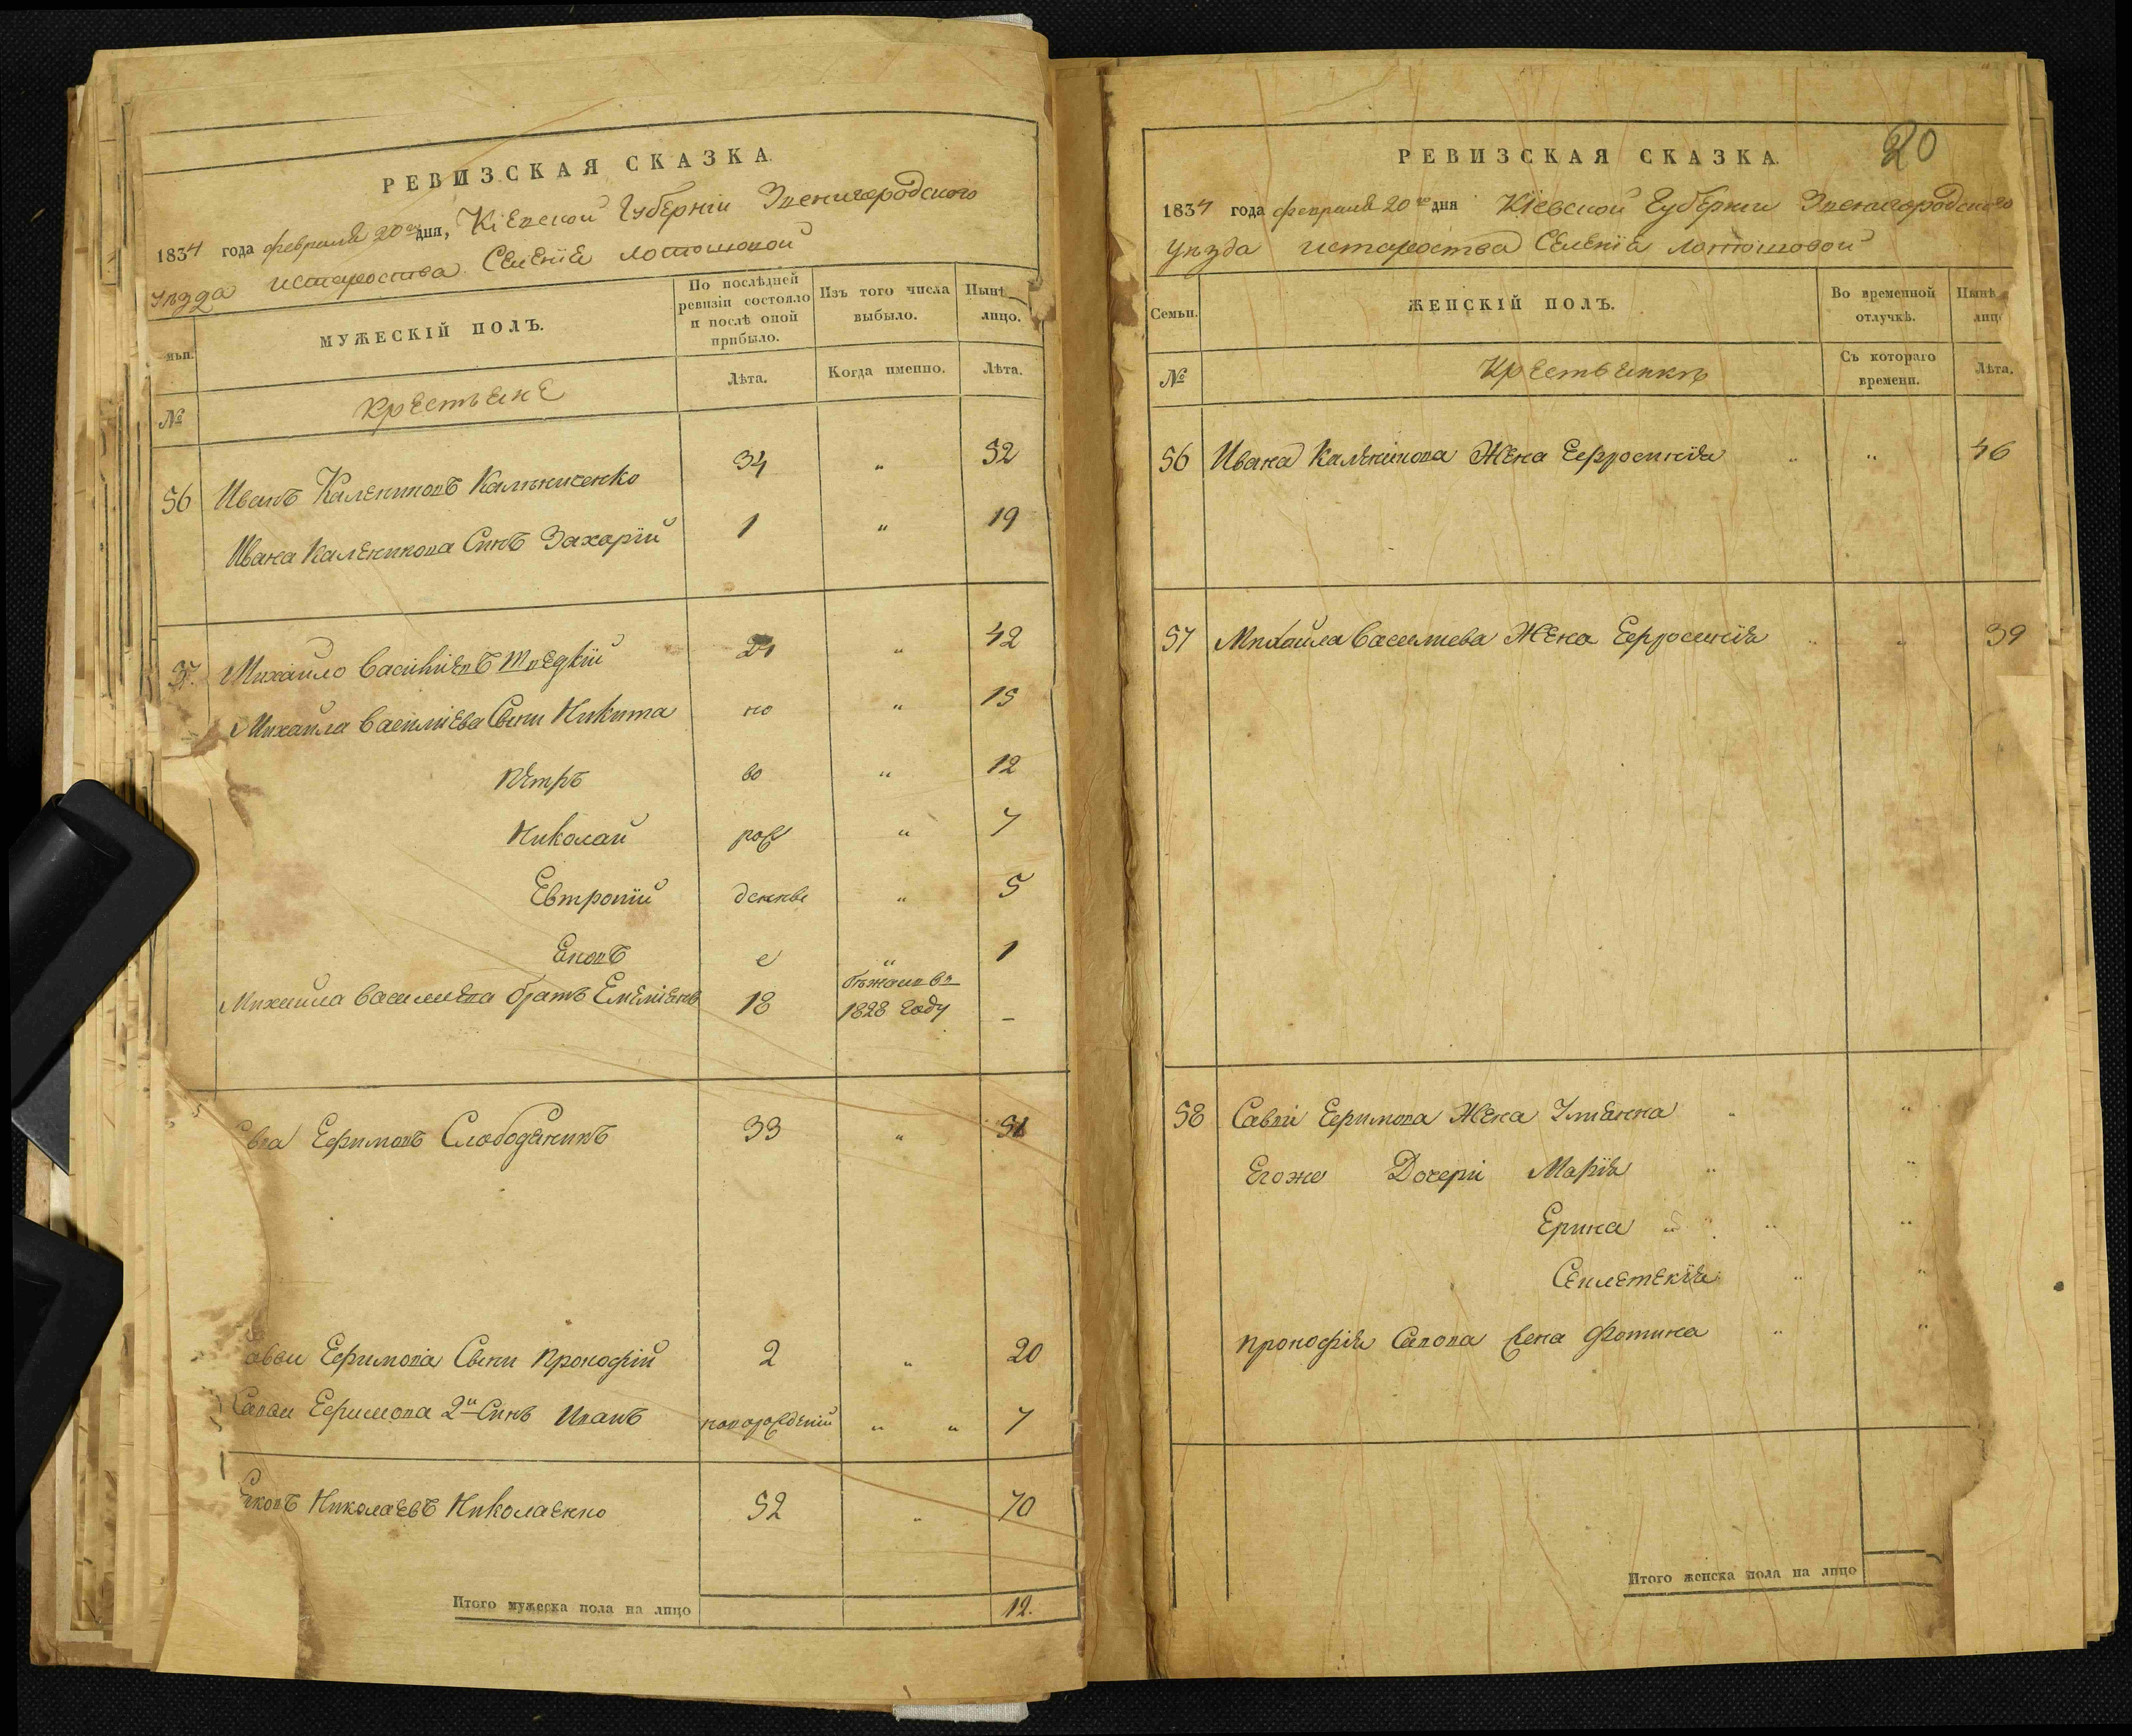 РЕВИЗСКАЯ СКАЗКА.
1834 года февраля 20го дня, Кіевской Губерніи Звенигородского
Уезда истароства Селенія Лотошовой
мьи.
МУЖЕСКІЙ ПОЛЪ.
По послѣдней ревизіи состояло и послѣ оной прибыло.
Изъ того числа выбыло.
Нынѣ лицо.
№
Крестьяне
Лѣта.
Когда именно.
Лѣта.
56 Иванъ Калениковъ Калениченко 34 " 52
Ивана Каленикова Синъ Захарій 1 " 19
37. Михайло Василиевъ 21 " 42
Михайла Василиева Сыни Никита но " 15
Петръ во " 12
Николай рож " 7
Евтропій деннве " 5
Яковъ е " 1
Михайла Василиева братъ Емелянъ 18 бѣжалъ въ 1828 году -
вва Ефимовъ Слободяникъ 33 " 51
аввы Ефимова Сыни Прокофій 2 " 20
Саввы Ефимова 2й Синъ Иванъ новорожденій " " 7
Яковъ Николаевъ Николаенко 52 " 70
Итого мужеска пола на лицо 12.
20
РЕВИЗСКАЯ СКАЗКА.
1834 года февраля 20го дня Кіевской Губернии Звенигородского
Уезда истароства Селенія Лотошовой
Семьи.
ЖЕНСКІЙ ПОЛЪ.
Во временной отлучкѣ.
Нынѣ лиц
№
Крестьянкъ
Съ котораго времени.
Лѣта.
56 Ивана Каленикова Жена Ефросинія " " 46
57 Михайла Василиева Жена Ефросинія " " 39
58 Саввы Ефимова Жена Улиянна " "
Егоже Дочери Марія " "
Ерина " " "
Секлетекія " "
Прокофія Савова Жена Фотина " "
Итого женска пола на лицо